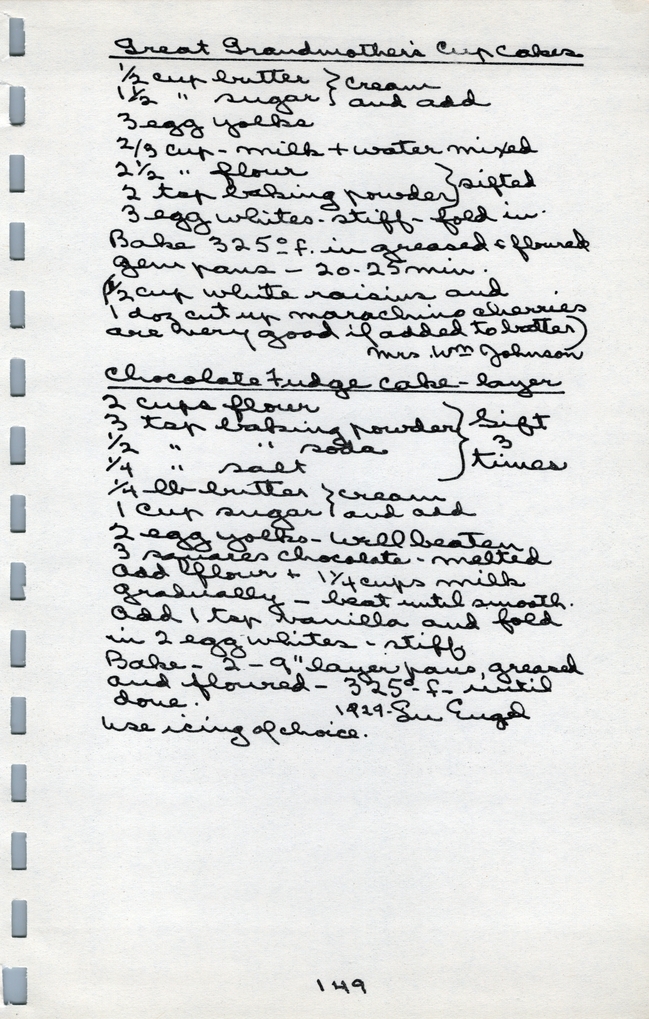 Great Grandmother's Cup Cakes
1/2 cup butter } cream
1 1/2 " sugar } and add
3 egg yolks
2/3 cup - milk + water mixed
2 1/2 " flour
2 tsp baking powder } sifted
3 egg whites - stiff - fold in.
Bake 325° f. in greased & floured
gem pans - 20-25 min.
(1/2 cup white raisins and
1 doz cut up maraschino cherries
are very good if added to batter)
Mrs. Wm Johnson
Chocolate Fudge Cake - layer
2 cups flour
3 tsp baking powder } Sift
1/2 " " soda } 3
1/4 " salt } times
1/4 lb butter } cream
1 cup sugar } and add
2 egg yolks - well beaten
3 squares chocolate - melted
add flour + 1 1/4 cups milk
gradually - beat until smooth.
Add 1 tsp vanilla and fold
in 2 egg whites - stiff
Bake - 2 - 9" layer pans, greased
and floured - 325° f - until
done. 1929 -
use icing of choice.
149